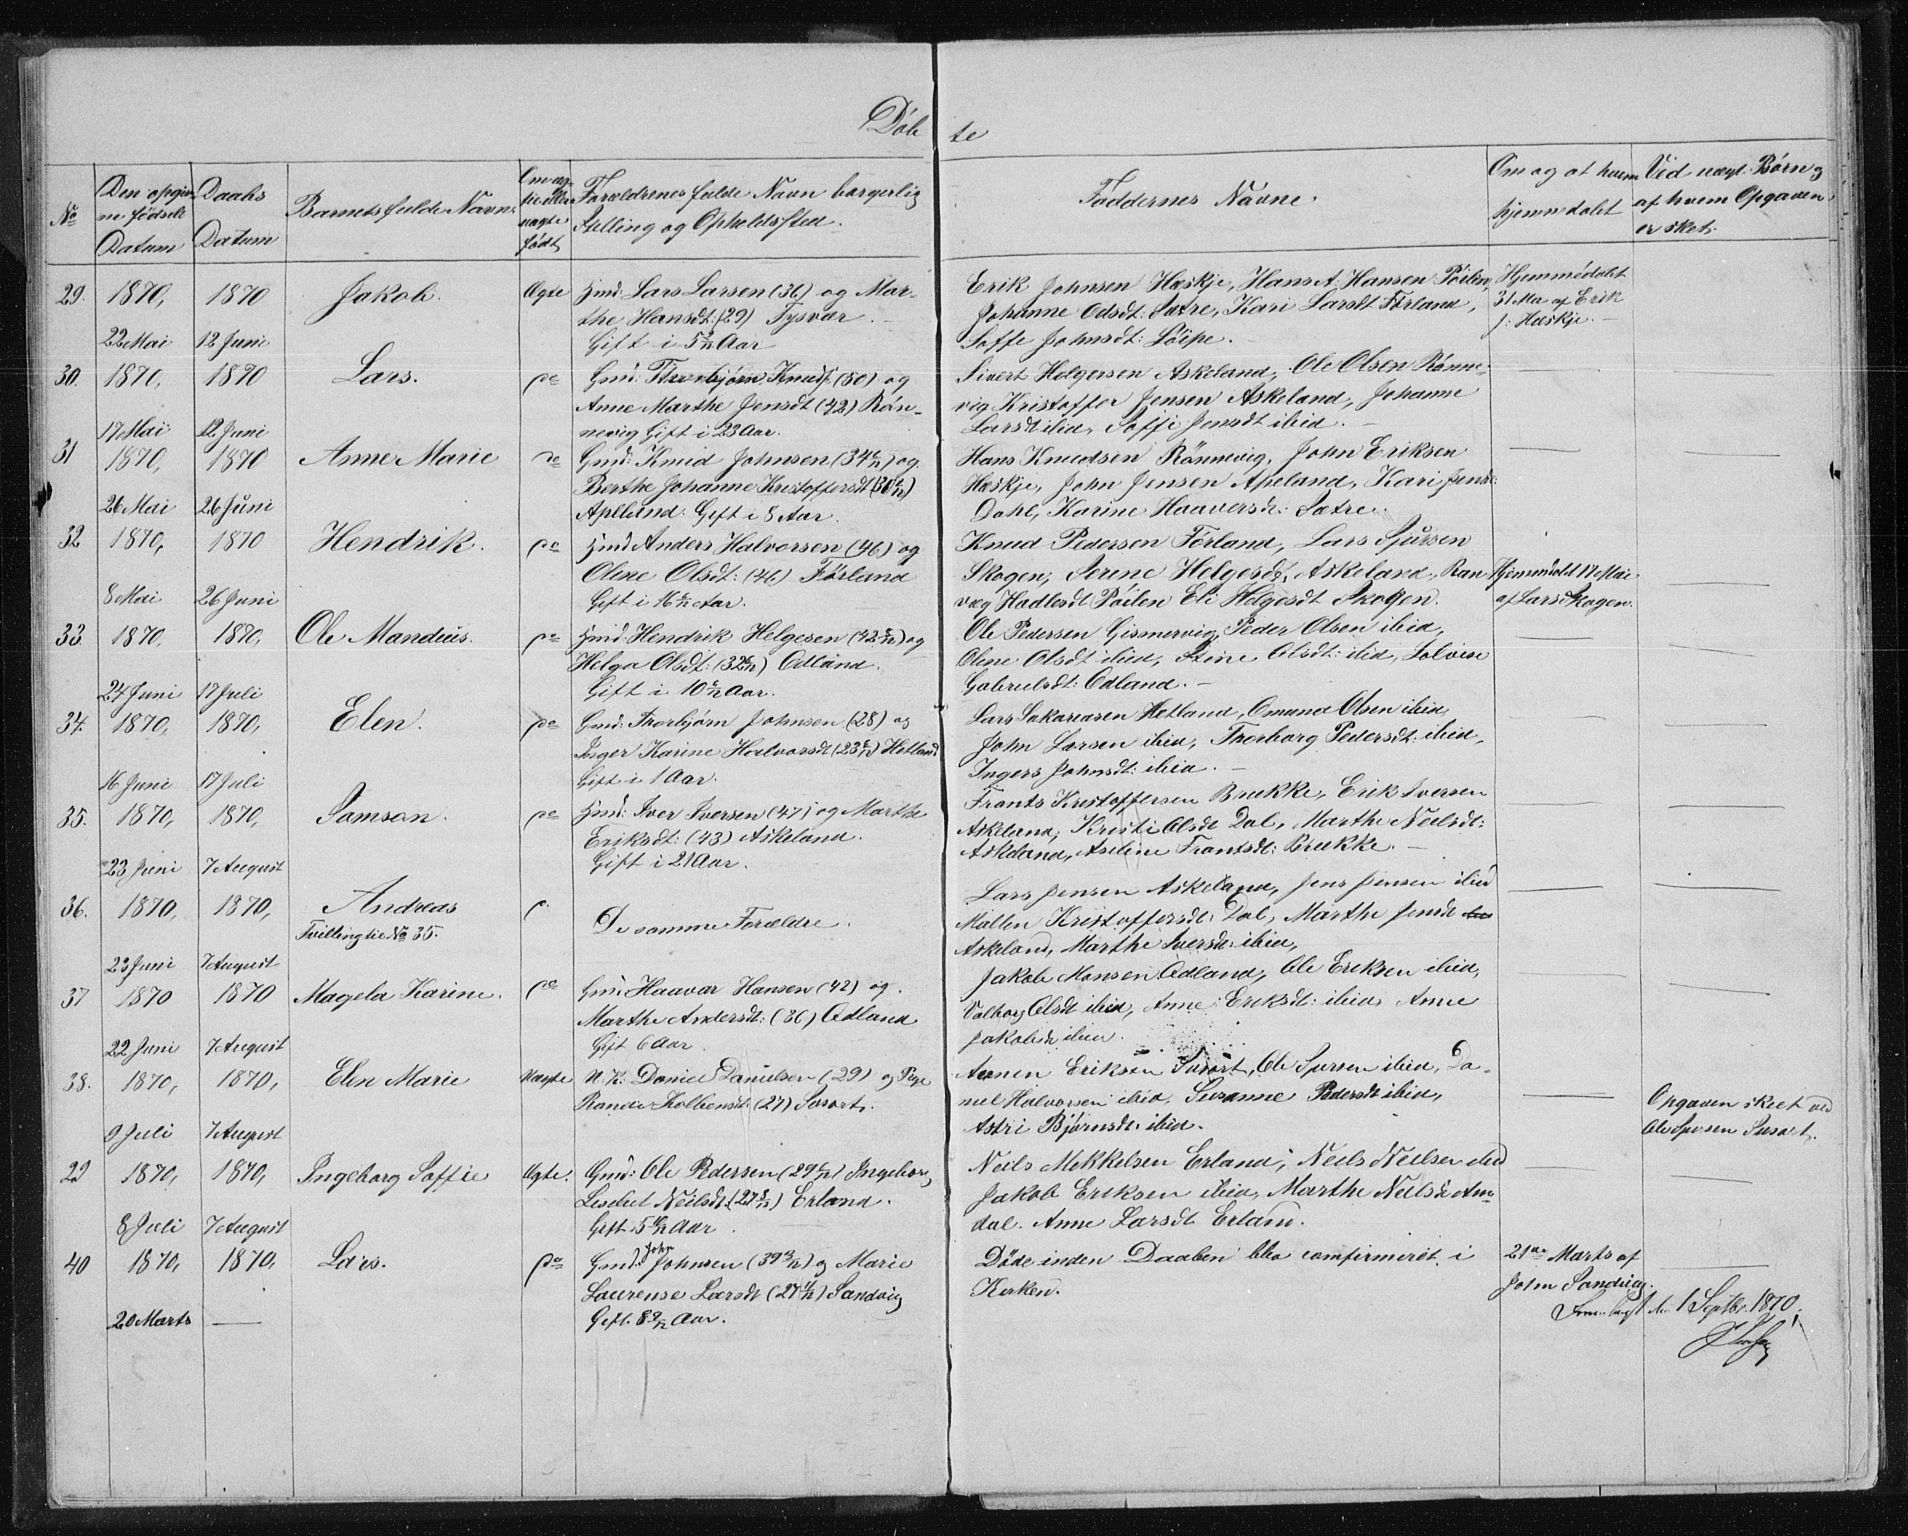 Döb te
No
Den opgiv
ne födsels
Datum
Daabs
Datum
Barnets fulde Navn
Om æg-
te eller
uægte
født
Forældrenes fulde Navn borgerlig
Stilling og Opholdssted.
Faddernes Navne.
Om og at hvem
hjemmedobt
Vid uægt: Børn
af hvem Opgaven
er skeet.
29. 1870, 1870 Jakob. Ægte Hmd: Lars Larsen (36) og Mar-
the Hansdt: (29) Tysvær.
22 Mai 12 Juni Gift i 5 Aar
Erik Johnsen Hæskje, Hans A. Hansen Pöilen,
Johanne Odsdt: Sætre, Kari Larsdt Förland,
Soffe Johnsdt: Löipe.
Hjemmedöbt
31 Mai af Erik
J: Hæskje.
30. 1870, 1870 Lars. do Gmd: Thorbjørn Knuds (50) og
Anne Marthe Jensdt (42) Rön-
17 Mai 12 Juni nevig Gift i 23 Aar.
Sivert Helgersen Askeland, Ole Olsen Rönne-
vig Kristoffer Jensen Askeland, Johanne
Larsdt ibid, Soffi Jensdt ibid.
31 1870, 1870 Anne Marie do Gmd: Knud Johnsen (34) og
Berthe Johanne Kristoffersdt (30)
26 Mai 26 Juni Apeland. Gift i 8 Aar.
Hans Knudsen Rönnevig, John Eriksen
Hæskje, John Jensen Apeland, Kari Jensd:
Dahl, Karine Haaversdt: Sætre.
32 1870, 1870 Hendrik. do Hmd Anders Halvorsen (46) og
Olene Olsdt: (46) Förland
8 Mai 26 Juni Gift i 16 Aar.
Knud Pedersen Förland, Lars Sjursen
Skogen, Serine Helgesdt, Askeland, Ran
væg Hadlesdt Pöilen Eli Helgesdt Skogen.
Hjemmdöbt 17 Mai
af Lars Skogen.
33 1870, 1870, Ole Mandius. do Hmd: Hendrik Helgesen (42) og
Helga Olsdt: (32) Odland.
24 Juni 17 Juli Gift i 10 Aar.
Ole Pedersen Gismervig, Peder Olsen ibid,
Olene Olsdt ibid, Stine Olsdt: ibid, Solvei
Gabrielsdt: Odland.
34. 1870, 1870, Elen. do Gmd: Thorbjørn Johnsen (28) og
Inger Karine Halvorsdt (23) Hetland
16 Juni 17 Juli Gift i 1 Aar.
Lars Sakariasen Hetland, Omund Olsen ibid
John Larsen ibid, Thorborg Pedersdt: ibid,
Ingers Johnsdt: ibid.
35. 1870, 1870, Samson. do Hmd: Iver Iversen (47) og Marthe
Eriksdt: (43) Askeland.
23 Juni 7 August Gift i 21 Aar.
Frants Kristoffersen Brekke, Erik Iversen
Askeland, Kristi Olsdt Dal, Marthe Neilsdt:
Askeland, Aseline Frantsdt: Brekke.
36. 1870, 1870, Andreas
Tvilling til No 35.
De samme Forældre.
23 Juni 7 August
Lars Jensen Askeland, Jens Jensen ibid
Mallen Kristoffersdt: Dal, Marthe Jensdt
Askeland, Marthe Iversdt: ibid,
37 1870 1870 Magela Karine. do Gmd: Haavar Hansen (42) og
Marthe Andersdt: (36) Odland
22 Juni 7 August Gift 6 Aar.
Jakob Monsen Odland, Ole Eriksen ibid,
Valborg Olsdt ibid, Anne Eriksdt: ibid Anne
Jakobsdt ibid.
38. 1870, 1870, Elen Marie Uægte U. K. Daniel Danielsen (29) og Pige
Randi Kolbensdt: (27) Susort.
9 Juli 7 August
Eriksen Susort, Ole Sjursen ibid, Da-
niel Halvorsen ibid, Susanne Pedersdt ibid,
Astri Bjørnsdt: ibid.
Opgaven skeet ved
Ole Sjursen Susort.
29 1870, 1870, Ingeborg Soffie Ægte. Gmd: Ole Pedersen (29) Ingeborg
Lisebet Neilsdt (27) Erland.
8 Juli 7 August Gift 5 Aar
Neils Mikkelsen Erland, Neils Neilsen ibid
Jakob Eriksen ibid, Marthe Neilsdt Am-
dal. Anne Larsdt Erland.
40 1870, 1870, Lars. do Gmd: John Johnsen (39) og Marie
Laurense Larsdt (27) Sandvig
20 Marts — Gift. 8 Aar.
Döde inden Daaben blev comfirmeret i
Kirken.
21de Marts af
John Sandvig.
1 Septbr. 1870.